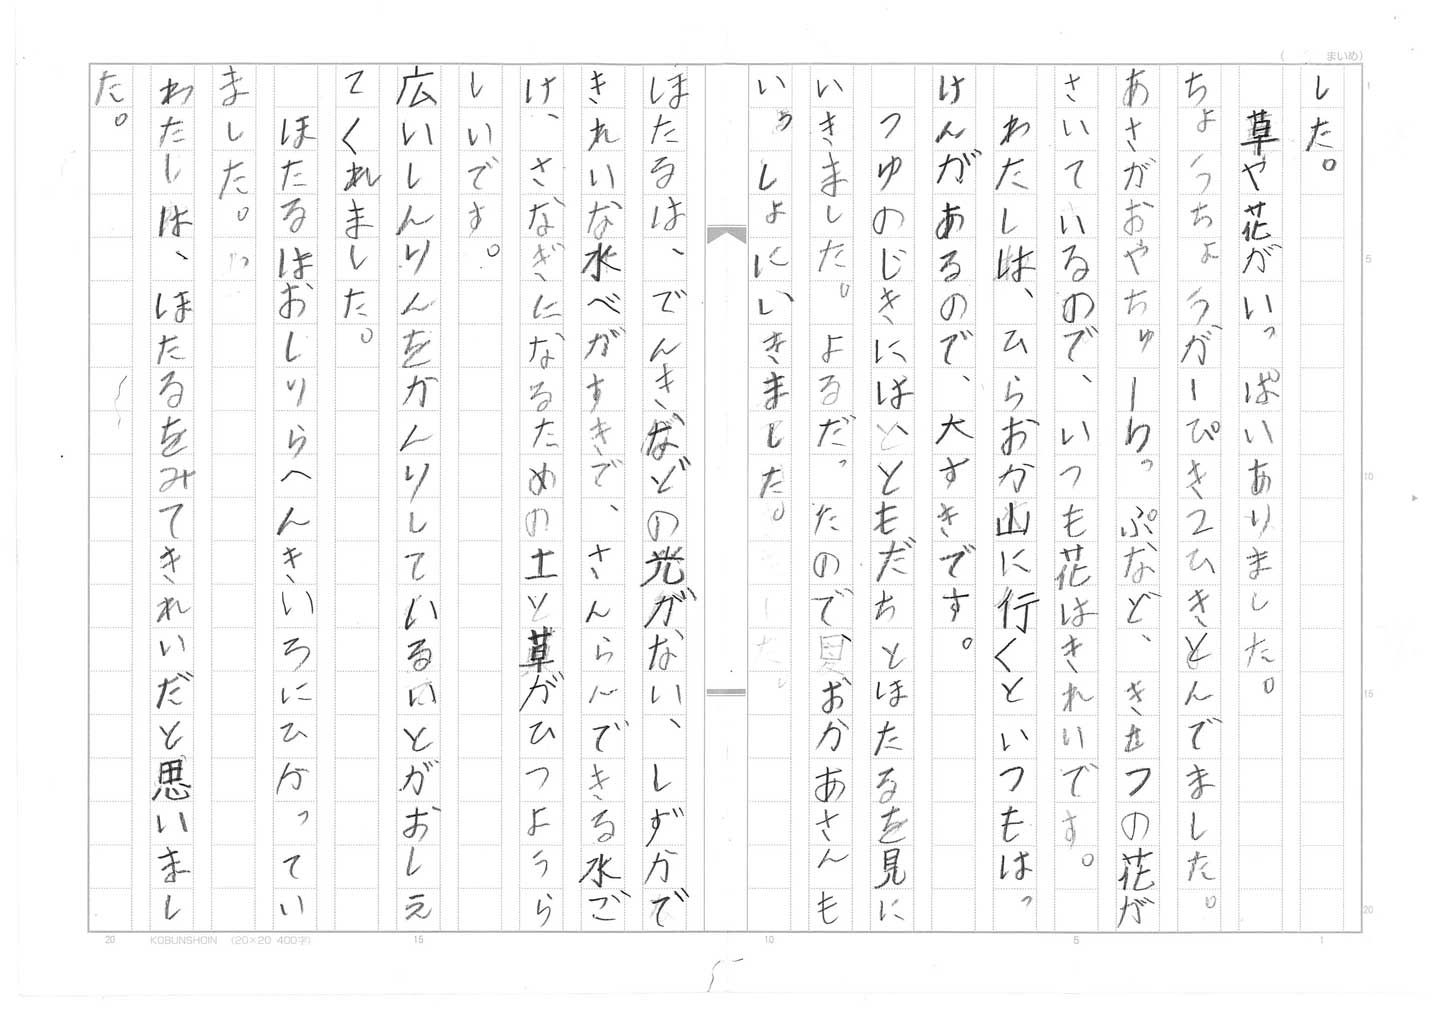 した。
草や花がいっぱいありました。
ちょうちょうが一ぴき2ひきとんでました。
あさがおやちゅーりっぷなど、きせつの花が
さいているので、いつも花はきれいです。
わたしは、ひらおか山に行くといつもはっ
けんがあるので、大すきです。
つゆのじきにはととともだちとほたるを見に
いきました。よるだったのでおかあさんも
いっしょにいきました。
ほたるは、でんきなどの光がない、しずかで
きれいな水べがすきで、さんらんできる水ご
け、さなぎになるための土と草がひつようら
しいです。
広いしんりんをかんりしているいとがおしえ
てくれました。
ほたるはおしりらへんきいろにひかってい
ました。
わたしは、ほたるをみてきれいだと思いまし
た。
(まいめ)
1
5
10
15
20
20 KOBUNSHOIN (20×20 400字) 15 10 5 1